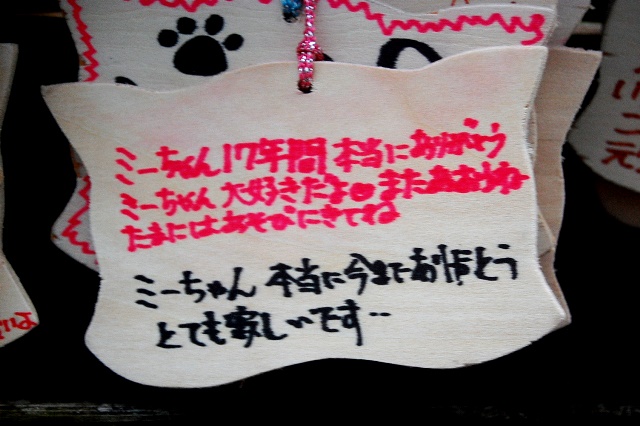 ミーちゃん17年間本当にありがとう
ミーちゃん大好きだよ。またあおうね
たまにはあそびにきてね
ミーちゃん本当に今までありがとう
とても寂しいです‥